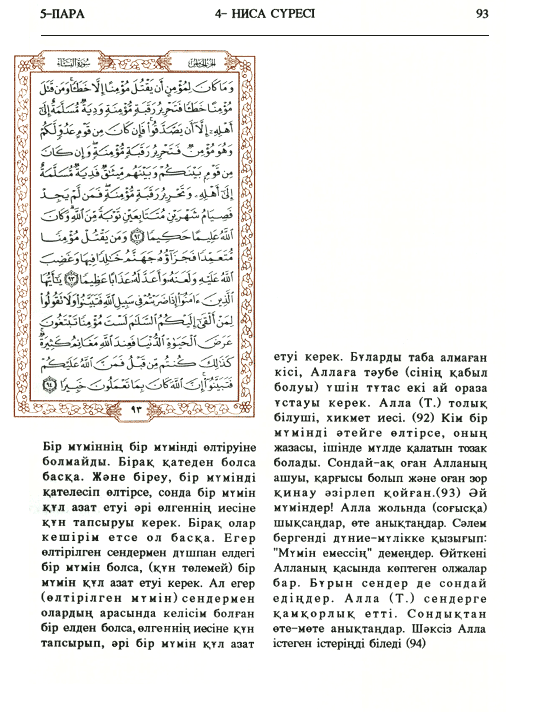 5–ПАРА 4– НИСА СҮРЕСІ 93
سورة النساء
الجزء الخامس
وَمَا كَانَ لِمُؤْمِنٍ أَن يَقْتُلَ مُؤْمِنًا إِلَّا خَطَـًٔا وَمَن قَتَلَ
مُؤْمِنًا خَطَـًٔا فَتَحْرِيرُ رَقَبَةٍ مُّؤْمِنَةٍ وَدِيَةٌ مُّسَلَّمَةٌ إِلَىٰٓ
أَهْلِهِۦٓ إِلَّآ أَن يَصَّدَّقُوا۟ فَإِن كَانَ مِن قَوْمٍ عَدُوٍّ لَّكُمْ
وَهُوَ مُؤْمِنٌ فَتَحْرِيرُ رَقَبَةٍ مُّؤْمِنَةٍ وَإِن كَانَ
مِن قَوْمٍۭ بَيْنَكُمْ وَبَيْنَهُم مِّيثَـٰقٌ فَدِيَةٌ مُّسَلَّمَةٌ
إِلَىٰٓ أَهْلِهِۦ وَتَحْرِيرُ رَقَبَةٍ مُّؤْمِنَةٍ فَمَن لَّمْ يَجِدْ
فَصِيَامُ شَهْرَيْنِ مُتَتَابِعَيْنِ تَوْبَةً مِّنَ ٱللَّهِ وَكَانَ
ٱللَّهُ عَلِيمًا حَكِيمًا ٩٢ وَمَن يَقْتُلْ مُؤْمِنًا
مُّتَعَمِّدًا فَجَزَآؤُهُۥ جَهَنَّمُ خَـٰلِدًا فِيهَا وَغَضِبَ
ٱللَّهُ عَلَيْهِ وَلَعَنَهُۥ وَأَعَدَّ لَهُۥ عَذَابًا عَظِيمًا ٩٣ يَـٰٓأَيُّهَا
ٱلَّذِينَ ءَامَنُوٓا۟ إِذَا ضَرَبْتُمْ فِى سَبِيلِ ٱللَّهِ فَتَبَيَّنُوا۟ وَلَا تَقُولُوا۟
لِمَنْ أَلْقَىٰٓ إِلَيْكُمُ ٱلسَّلَـٰمَ لَسْتَ مُؤْمِنًا تَبْتَغُونَ
عَرَضَ ٱلْحَيَوٰةِ ٱلدُّنْيَا فَعِندَ ٱللَّهِ مَغَانِمُ كَثِيرَةٌ
كَذَٰلِكَ كُنتُم مِّن قَبْلُ فَمَنَّ ٱللَّهُ عَلَيْكُمْ
فَتَبَيَّنُوٓا۟ إِنَّ ٱللَّهَ كَانَ بِمَا تَعْمَلُونَ خَبِيرًا ٩٤
٩٣
Бір мүміннің бір мүмінді өлтіруіне
болмайды. Бірақ қатеден болса
басқа. Және біреу, бір мүмінді
қателесіп өлтірсе, сонда бір мүмін
құл азат етуі әрі өлгеннің иесіне
құн тапсыруы керек. Бірақ олар
кешірім етсе ол басқа. Егер
өлтірілген сендермен дұшпан елдегі
бір мүмін болса, (құн төлемей) бір
мүмін құл азат етуі керек. Ал егер
(өлтірілген мүмін) сендермен
олардың арасында келісім болған
бір елден болса, өлгеннің иесіне құн
тапсырып, әрі бір мүмін құл азат
етуі керек. Бұларды таба алмаған
кісі, Аллаға тәубе (сінің қабыл
болуы) үшін тұтас екі ай ораза
ұстауы керек. Алла (Т.) толық
білуші, хикмет иесі. (92) Кім бір
мүмінді әтейге өлтірсе, оның
жазасы, ішінде мүлде қалатын тозақ
болады. Сондай-ақ оған Алланың
ашуы, қарғысы болып және оған зор
қинау әзірлеп қойған.(93) Әй
мүміндер! Алла жолында (соғысқа)
шықсаңдар, өте анықтаңдар. Сәлем
бергенді дүние-мүлікке қызығып:
"Мүмін емессің" демеңдер. Өйткені
Алланың қасында көптеген олжалар
бар. Бұрын сендер де сондай
едіңдер. Алла (Т.) сендерге
қамқорлық етті. Сондықтан
өте-мөте анықтаңдар. Шәксіз Алла
істеген істеріңді біледі (94)